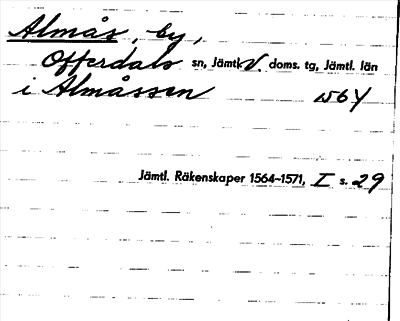 Almås, by,
Offerdals sn, Jämtl. V. doms. tg, Jämtl. län
i Almåssen 1564
Jämtl. Räkenskaper 1564-1571, I s. 29